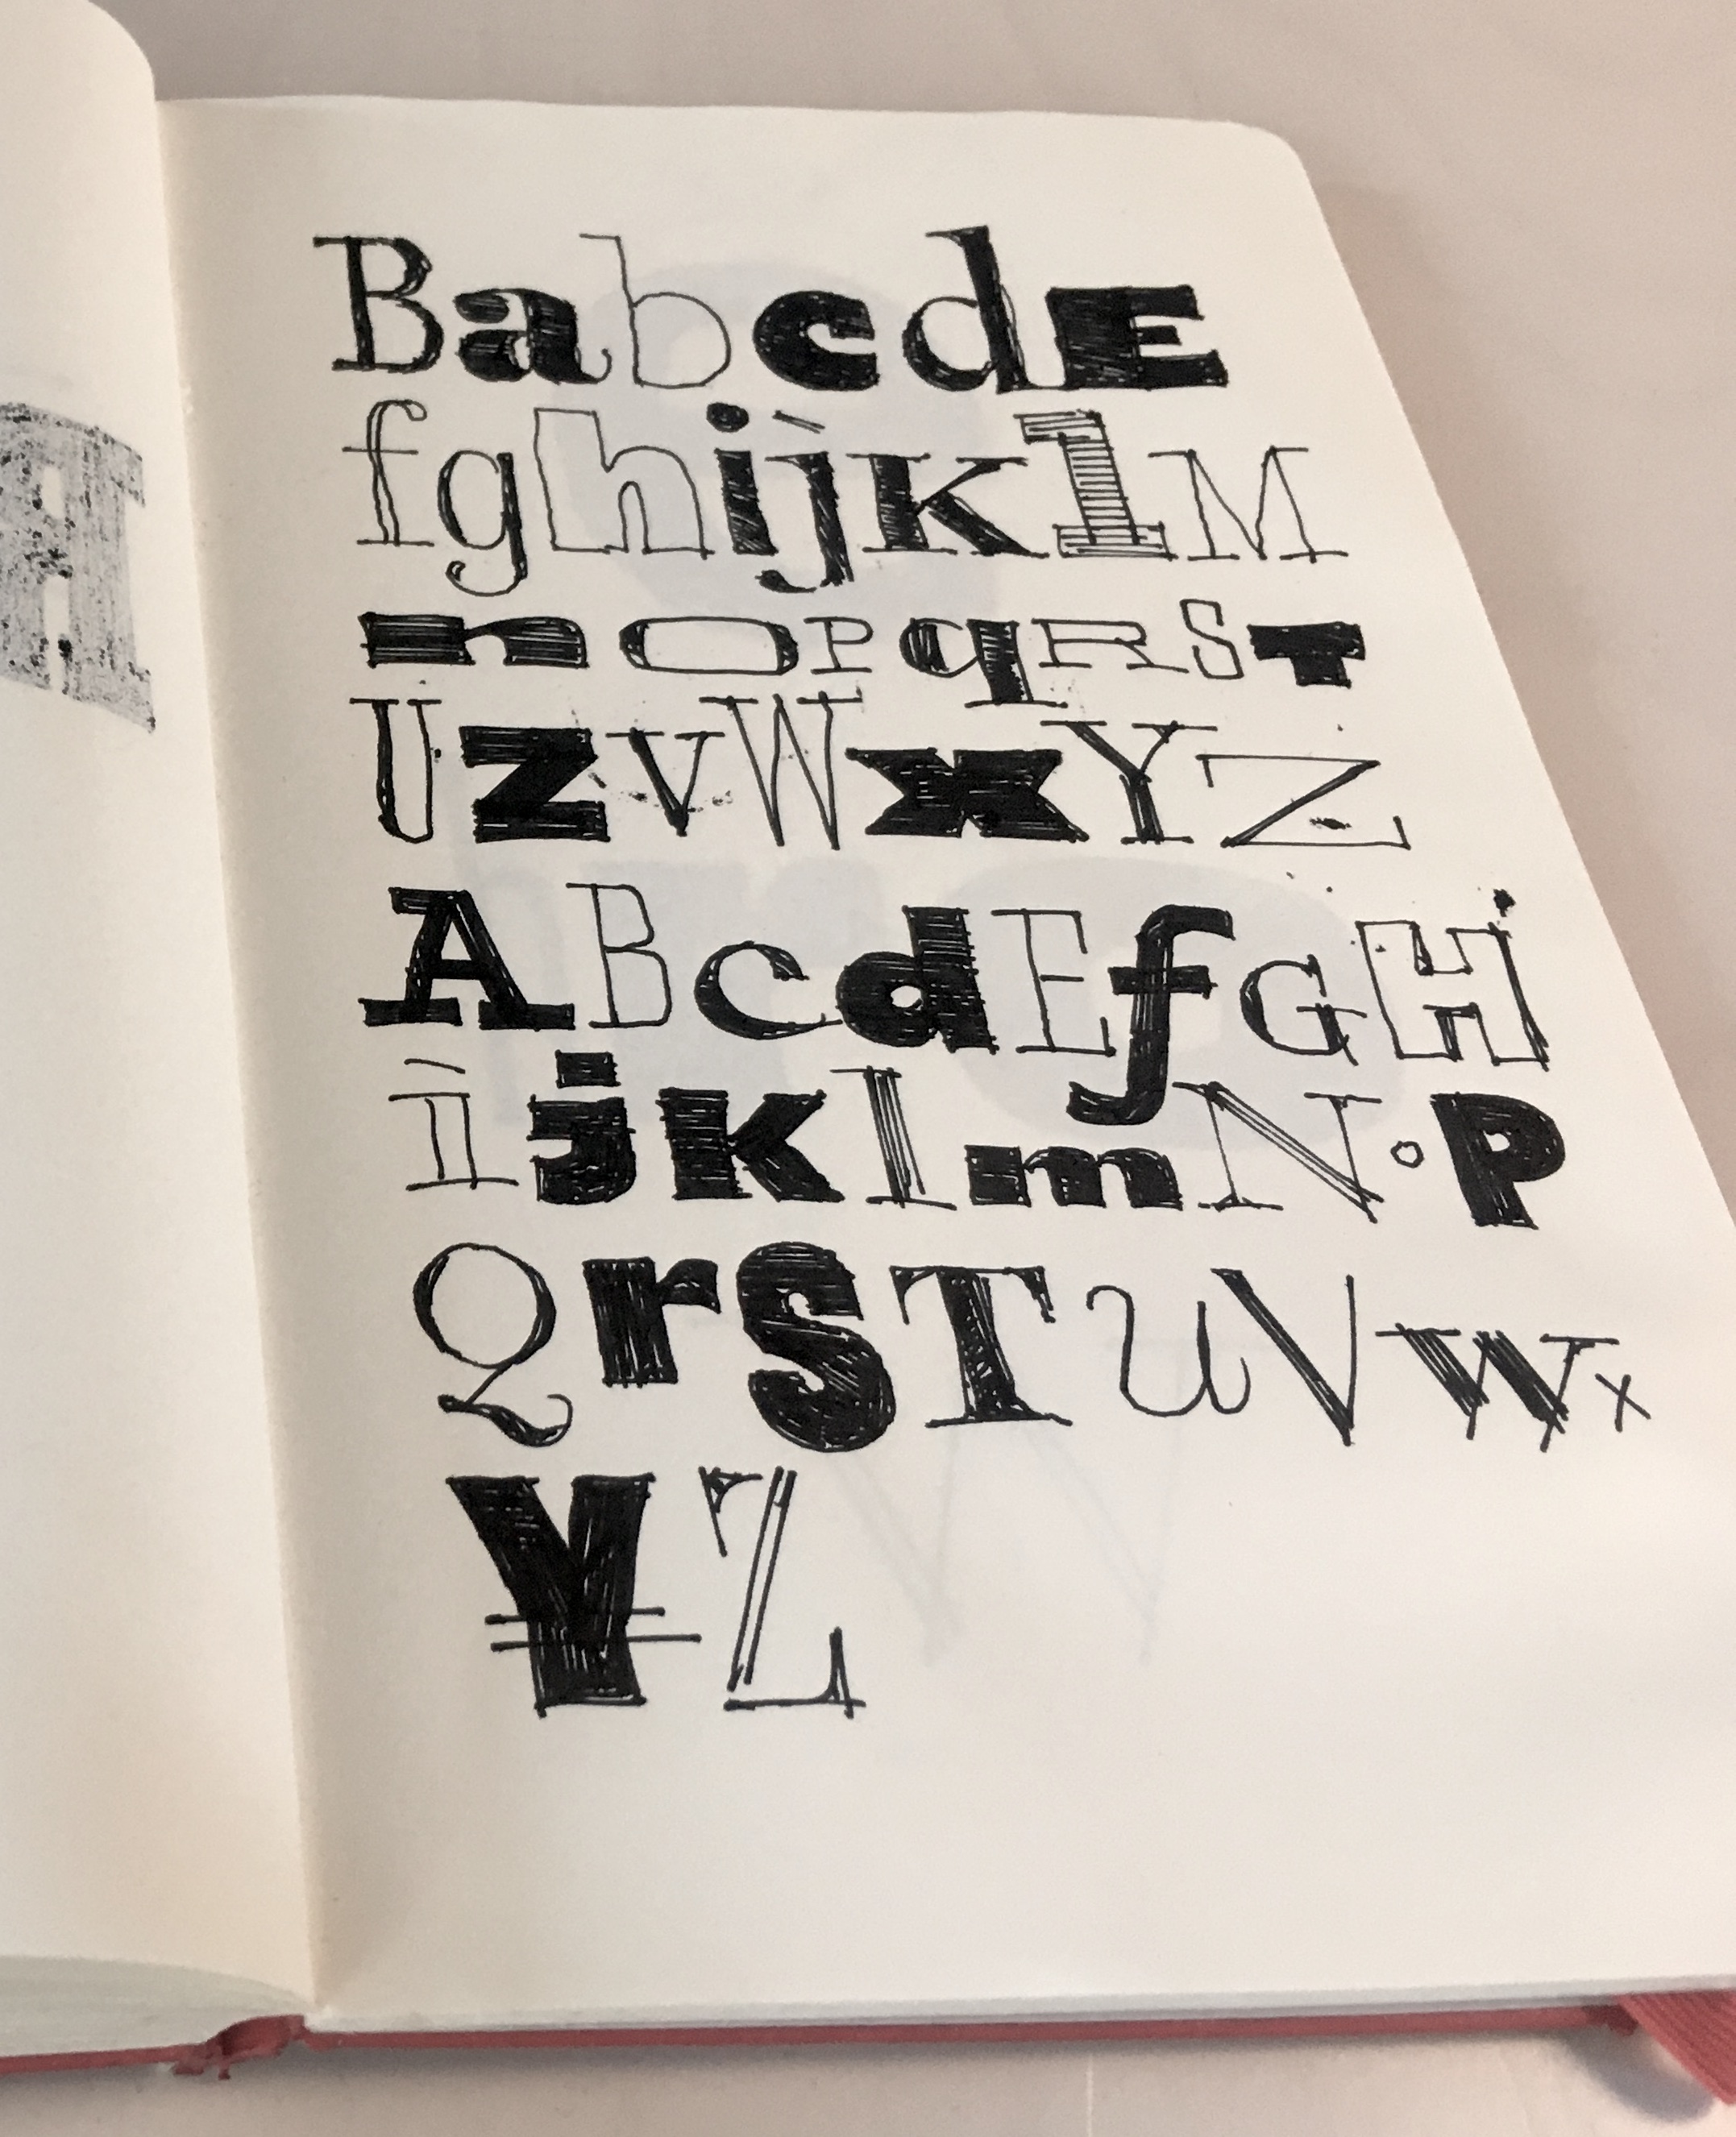 BabcdE
fghijKlM
nOPqRST
UZVWXYZ
ABcdEfGH
ijKlmNoP
QrSTUVWx
YZ